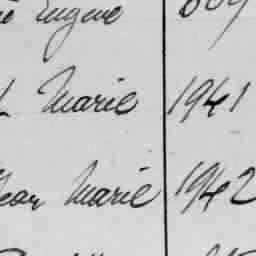 Eugene
Marie 1941
Jean Marie 1942